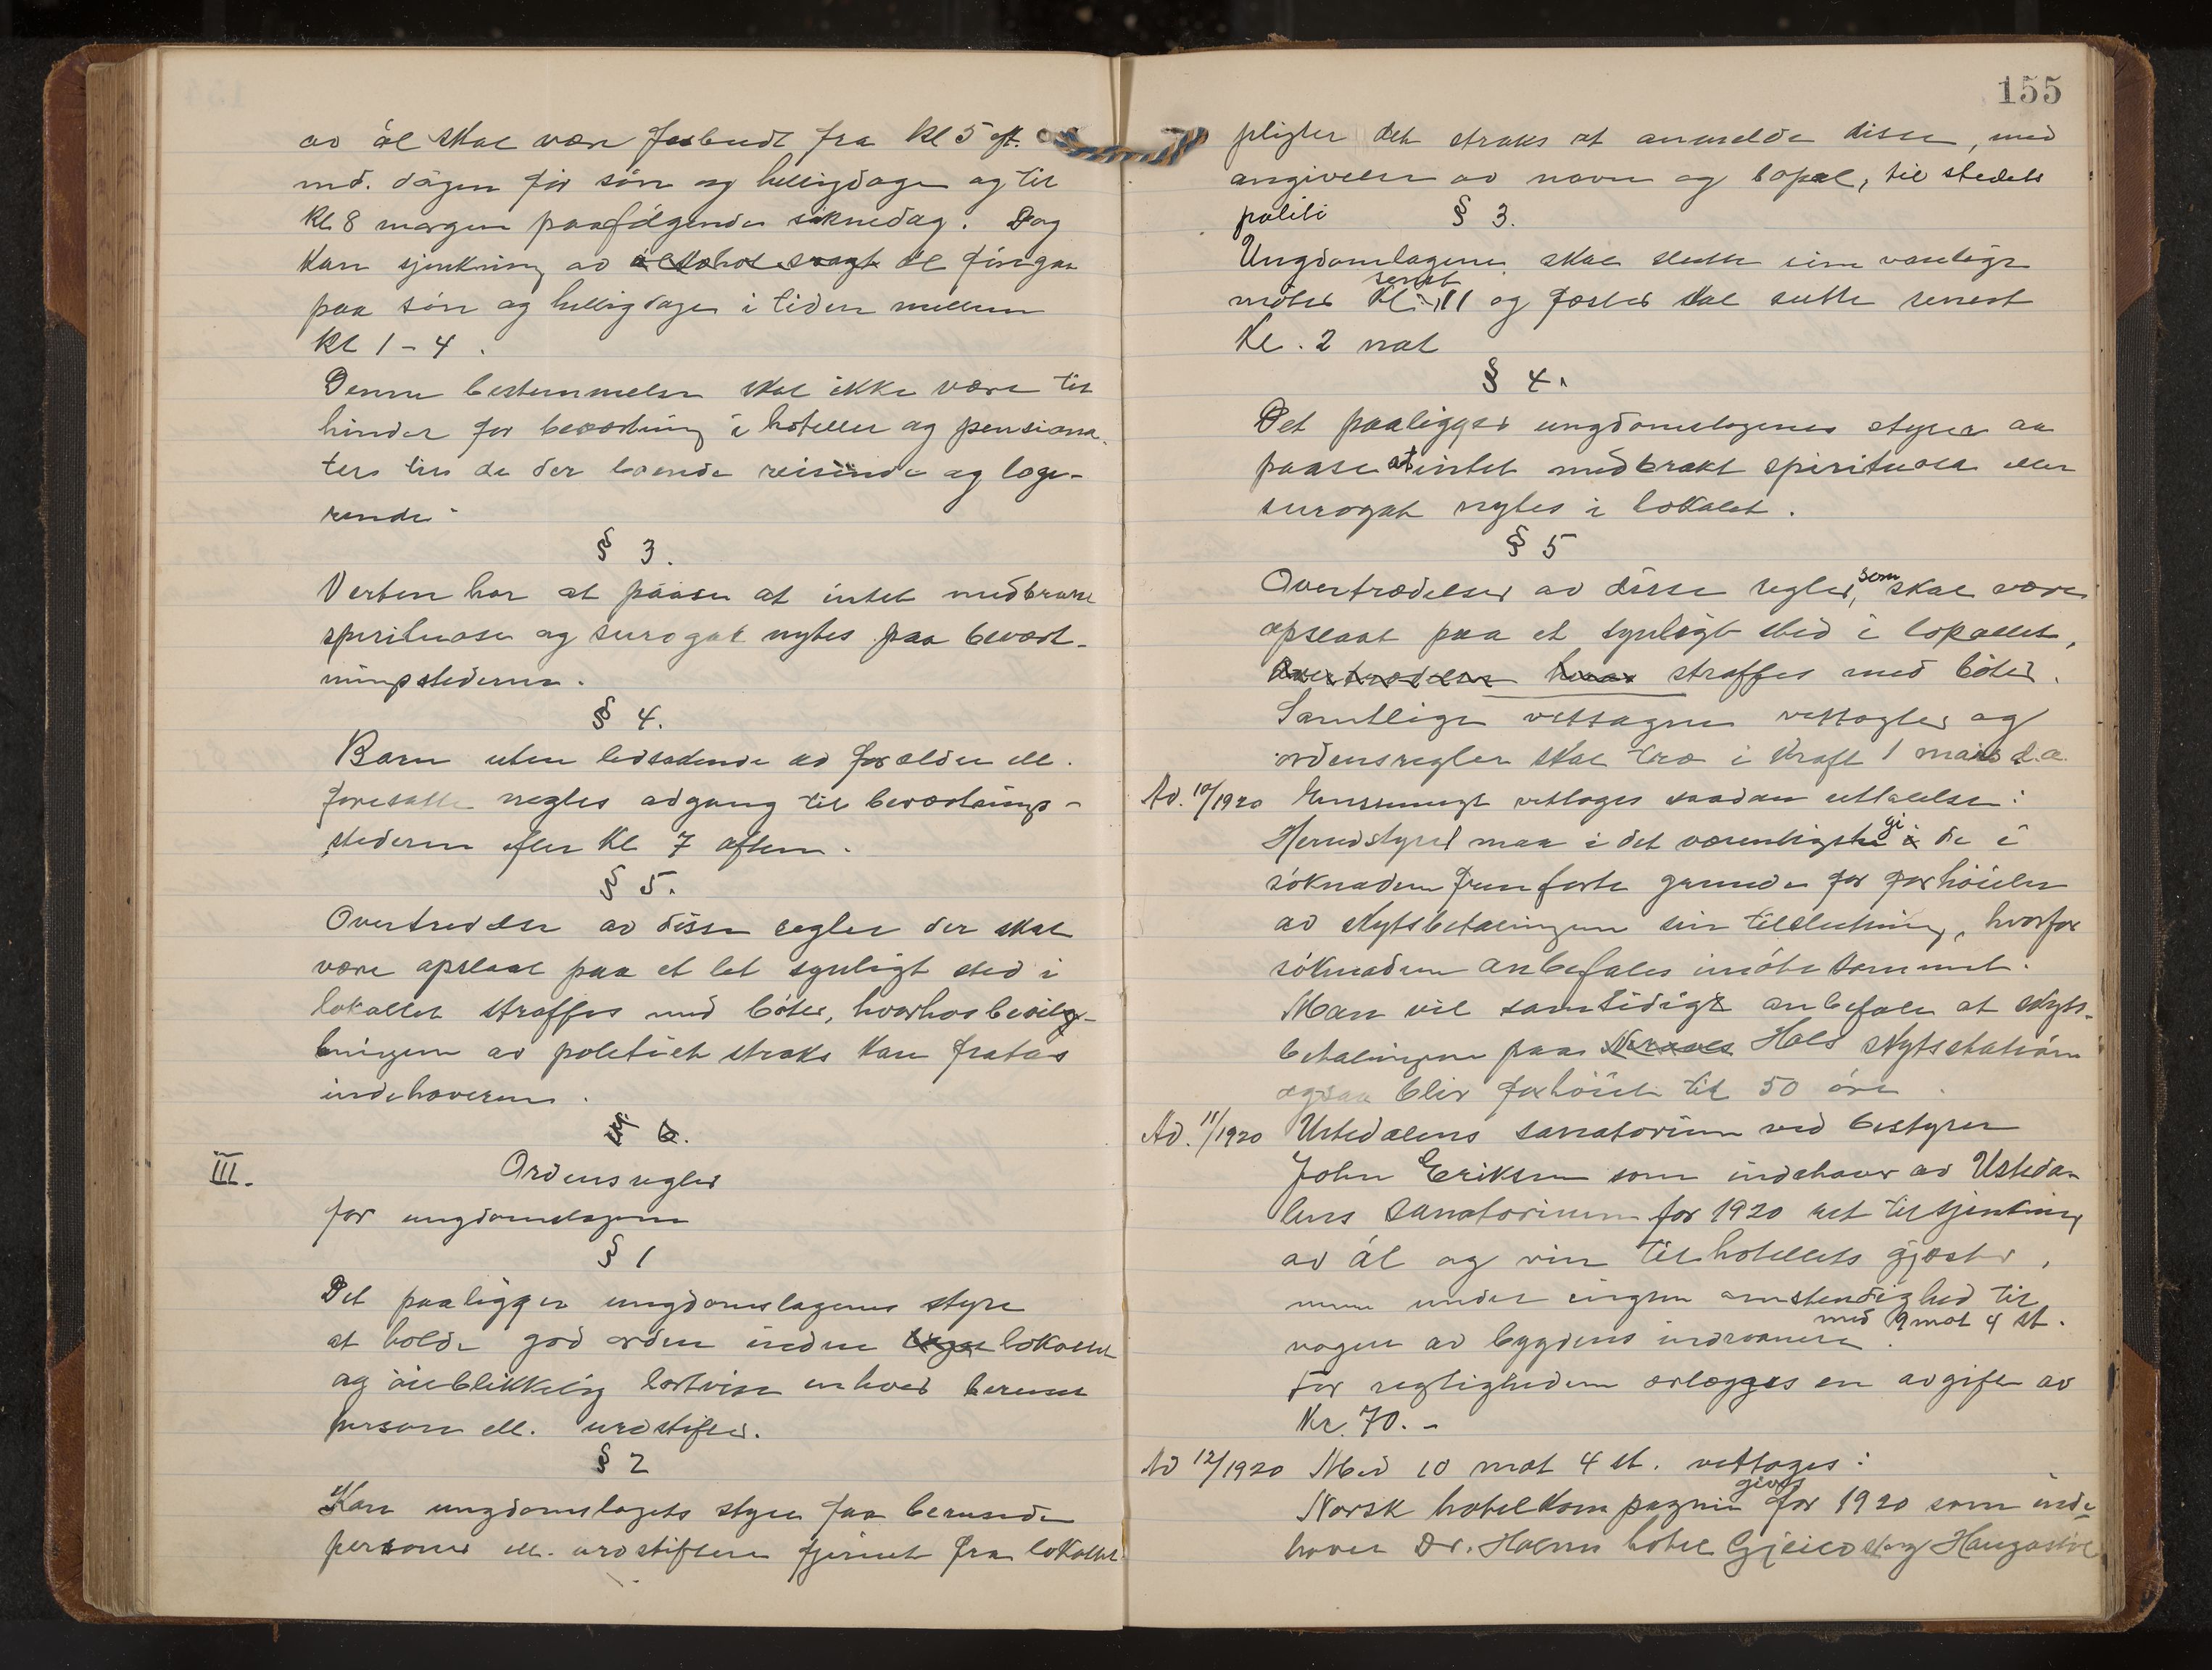 av öl skal være forbudt fra kl 5 eft.
md. dagen før søn og helligdage og til
kl. 8 morgen paafølgende søknedag. Dog
kan sjenkning av alkohol svagt öl foregaa
paa søn og helligdage i tiden mellem
kl 1 - 4.
Denne bestemmelse skal ikke være til
hinder for beværtning i hoteller og pensiona-
ters til de der boende reisende og loge-
rende.
§ 3.
Verten har at paase at intet medbrakt
spirituosa og surogat nytes paa bevært-
ningsstederne.
§ 4.
Barn uten ledsadende av forældre ell.
foresatte negtes adgang til beværtnings-
stederne efter kl 7 aften.
§ 5.
Overtredelse av disse regler der skal
være opslaat paa et let synligt sted i
lokallet straffes med bøter, hvorhos bevilg-
ningen av politiet straks kan fratas
indehaveren.
§ 6.
III. Ordensregler
for ungdomslagene
§ 1
Det paaligger ungdomslagenes styre
at holde god orden inden lokallet
og øieblikkelig bortvise enhver beruset
person ell. urostifter.
§ 2
Kan ungdomslagets styre faa berusede
personer ell. urostiftere fjernet fra lokallet
155
pligter det straks at anmelde disse, med
angivelse av navn og bopæl, til stedets
politi § 3.
Ungdomslagene skal slutte sine vanlige
senest
møter kl. 11 og fæster skal sutte senest
kl. 2 nat
§ 4.
Det paaligger ungdomslagenes styre aa
paase at intet medbrakt spirituosa eller
surogat nytes i lokalet.
§ 5
Overtrædelser av disse regler, som skal være
opslaat paa et synligt sted i lokallet,
Overtrædelse herav straffes med bøter.
Samtlige vettagne vettogter og
ordensregler skal træ i kraft 1 mars d.a.
Ad. 10/1920 Enstemmigt vettoges saadan uttalelse:
Herredstyret maa i det væsentligste gi de i
søknaden fremførte grunde for forhøielse
av skytsbetalingen sin tilslutning, hvorfor
søknaden anbefales imøtekommet.
Man vil samtidigt anbefale at skyts-
betalingen paa Hols skytsstation
ogsaa blir forhøiet til 50 øre.
Ad. 11/1920 Ustedalens sanatorium ved bestyrer
John Eriksen som indehaver av Ustedа-
lens sanatorium for 1920 ret til sjenkning
av öl og vin til hotellets gjæster,
men under ingen omstendighed til
med 9 mot 4 st.
nogen av bygdens indvaanere.
For regtigheden erlægges en avgift av
Kr. 70.-
Ad 12/1920 Med 10 mot 4 st. vettoges:
gives
Norsk hotelkompagni for 1920 som inde-
haver Dr. Holms hotel Gjeilo og Haugastøl